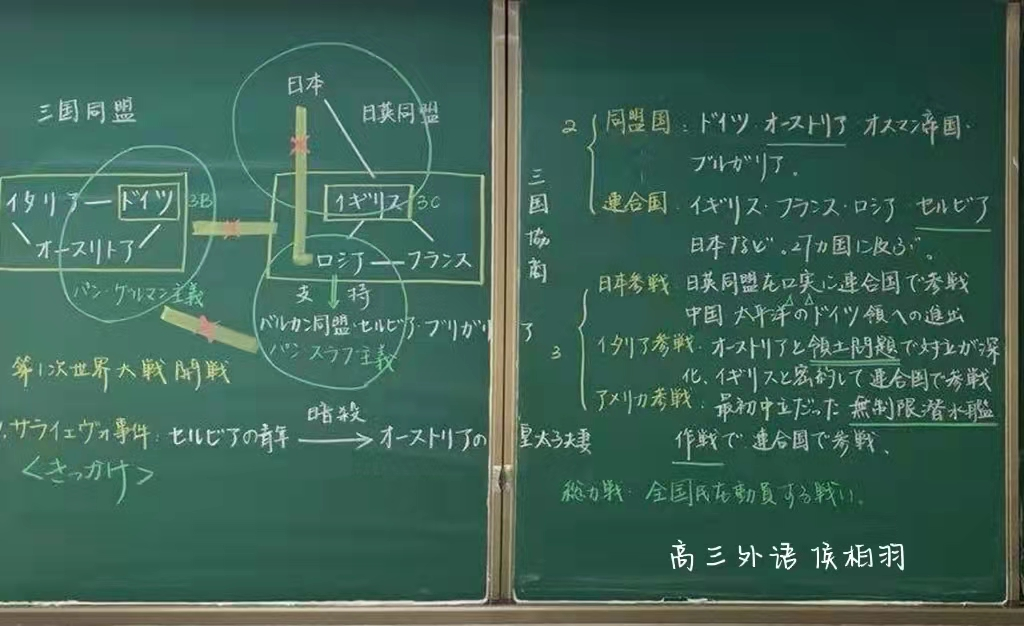 日本
三国同盟
日英同盟
イタリア ドイツ 3B
オーストリア
パン・ゲルマン主義
イギリス 3C
ロシア フランス
三国協商
支持
バルカン同盟・セルビア・ブリガリア
パン・スラフ主義
第1次世界大戦開戦
1.サライェヴォ事件:セルビアの青年 暗殺 オーストリアの皇太子夫妻
<きっかけ>
2 同盟国:ドイツ・オーストリア オスマン帝国・
ブルガリア。
連合国・イギリス・フランス・ロシア・セルビア
日本など、27カ国に及ぶ。
3 日本参戦 日英同盟を口実に連合国で参戦
中国 太平洋のドイツ領への進出
イタリア参戦・オーストリアと領土問題で対立が深
化、イギリスと密約して連合国で参戦
アメリカ参戦:最初中立だった 無制限潜水艦
作戦で連合国で参戦、
総力戦・全国民を動員する戦い。
高三外语 侯相羽